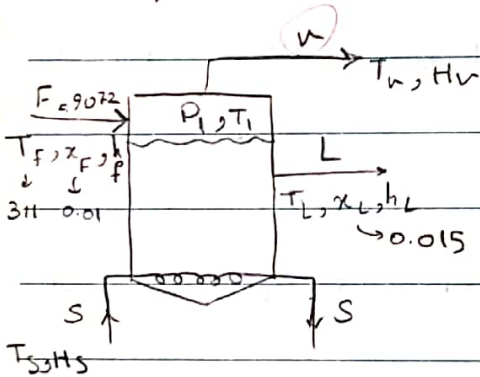 V
Tv, Hv
F = 9072
P1, T1
TF, xF, hF
311 0.01
L
TL, xL, hL
0.015
S
S
TS, HS